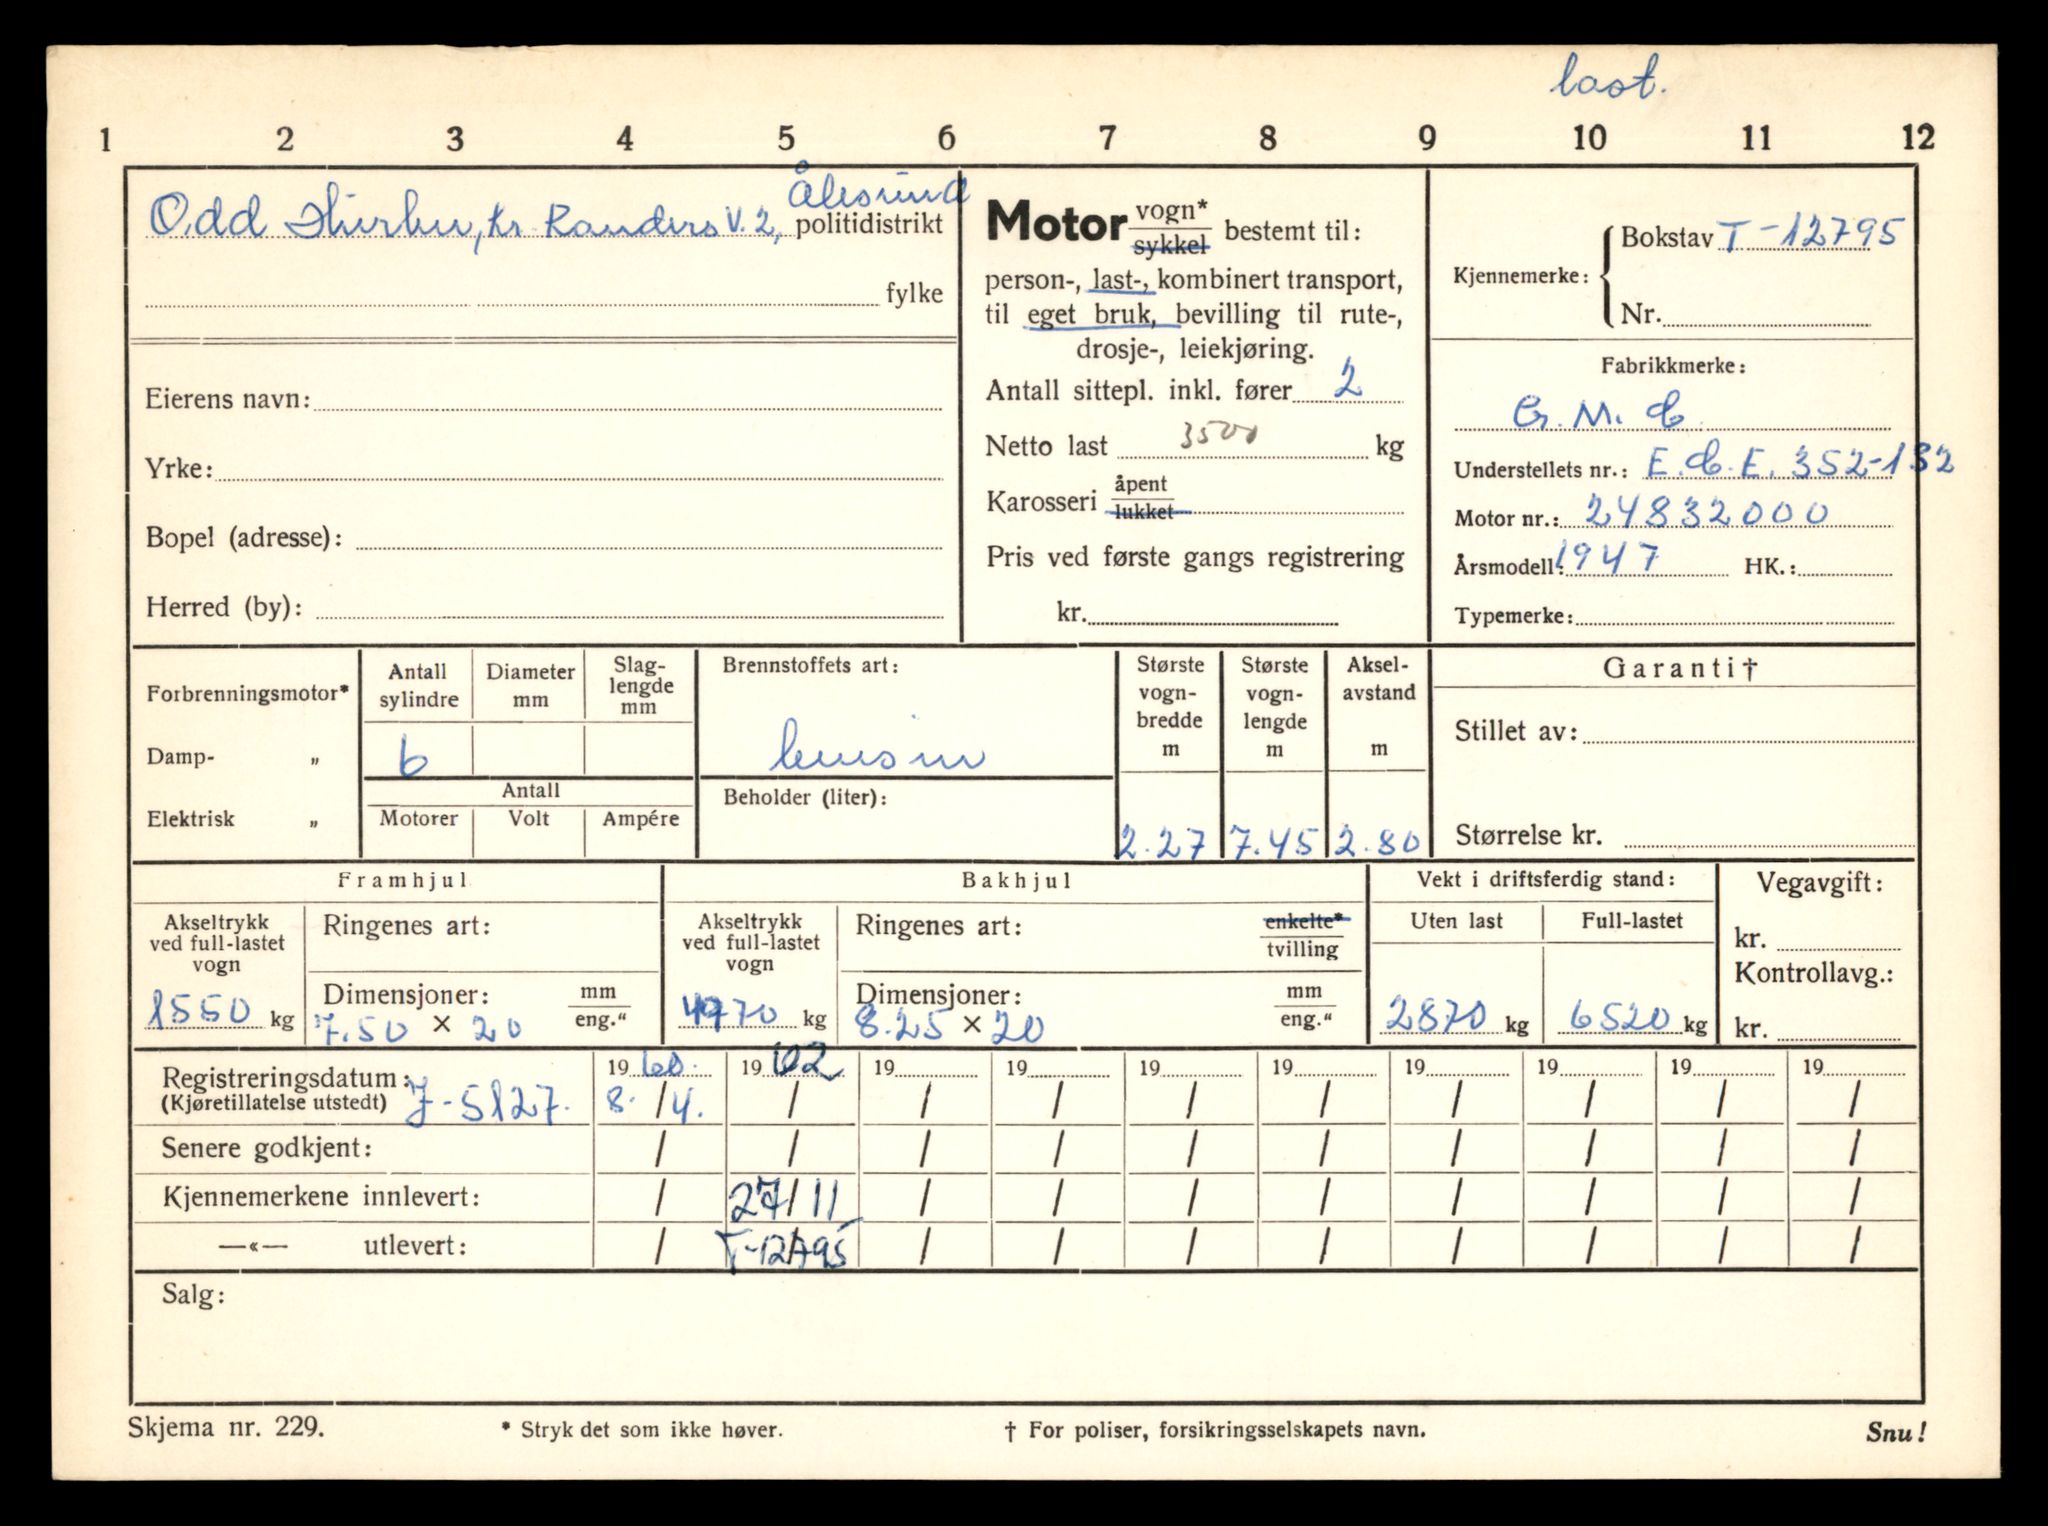 last.
1 2 3 4 5 6 7 8 9 10 11 12
Ålesund
Odd Kr. Randers V. 2, politidistrikt
fylke
Eierens navn:
Yrke:
Bopel (adresse):
Herred (by):
Motor vogn* / sykkel bestemt til:
person-, last-, kombinert transport,
til eget bruk, bevilling til rute-,
drosje-, leiekjøring.
Antall sittepl. inkl. fører 2
Netto last 3500 kg
Karosseri åpent / lukket
Pris ved første gangs registrering
kr.
Kjennemerke: Bokstav T-12795
Nr.
Fabrikkmerke:
G. M. C.
Understellets nr.: E. C. E. 352-132
Motor nr.: 24832000
Årsmodell: 1947 HK.:
Typemerke:
Forbrenningsmotor*
Damp- „
Elektrisk „
Antall sylindre
Diameter mm
Slag-lengde mm
6
Antall
Motorer Volt Ampére
Brennstoffets art:
bensin
Beholder (liter):
Største vogn-bredde m
2.27
Største vogn-lengde m
7.45
Aksel-avstand m
2.80
Garanti†
Stillet av:
Størrelse kr.
Framhjul
Akseltrykk ved full-lastet vogn
1550 kg
Ringenes art:
Dimensjoner: mm / eng."
7.50 × 20
Bakhjul
Akseltrykk ved full-lastet vogn
4970 kg
Ringenes art: enkelte* / tvilling
Dimensjoner: mm / eng."
8.25 × 20
Vekt i driftsferdig stand:
Uten last Full-lastet
2870 kg 6520 kg
Vegavgift:
kr.
Kontrollavg.:
kr.
Registreringsdatum: 19 60. 19 62 19 19 19 19 19 19 19 19
(Kjøretillatelse utstedt) J-5127. 8. / 4. / / / / / / / / /
Senere godkjent: / / / / / / / / / /
Kjennemerkene innlevert: / 27/11 / / / / / / / /
—«— utlevert: / T-12795 / / / / / / / /
Salg:
Skjema nr. 229. * Stryk det som ikke høver. † For poliser, forsikringsselskapets navn. Snu!